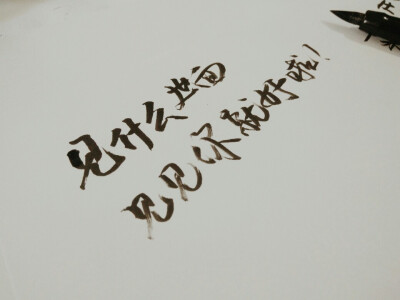 见什么世面
见见你就好啦！